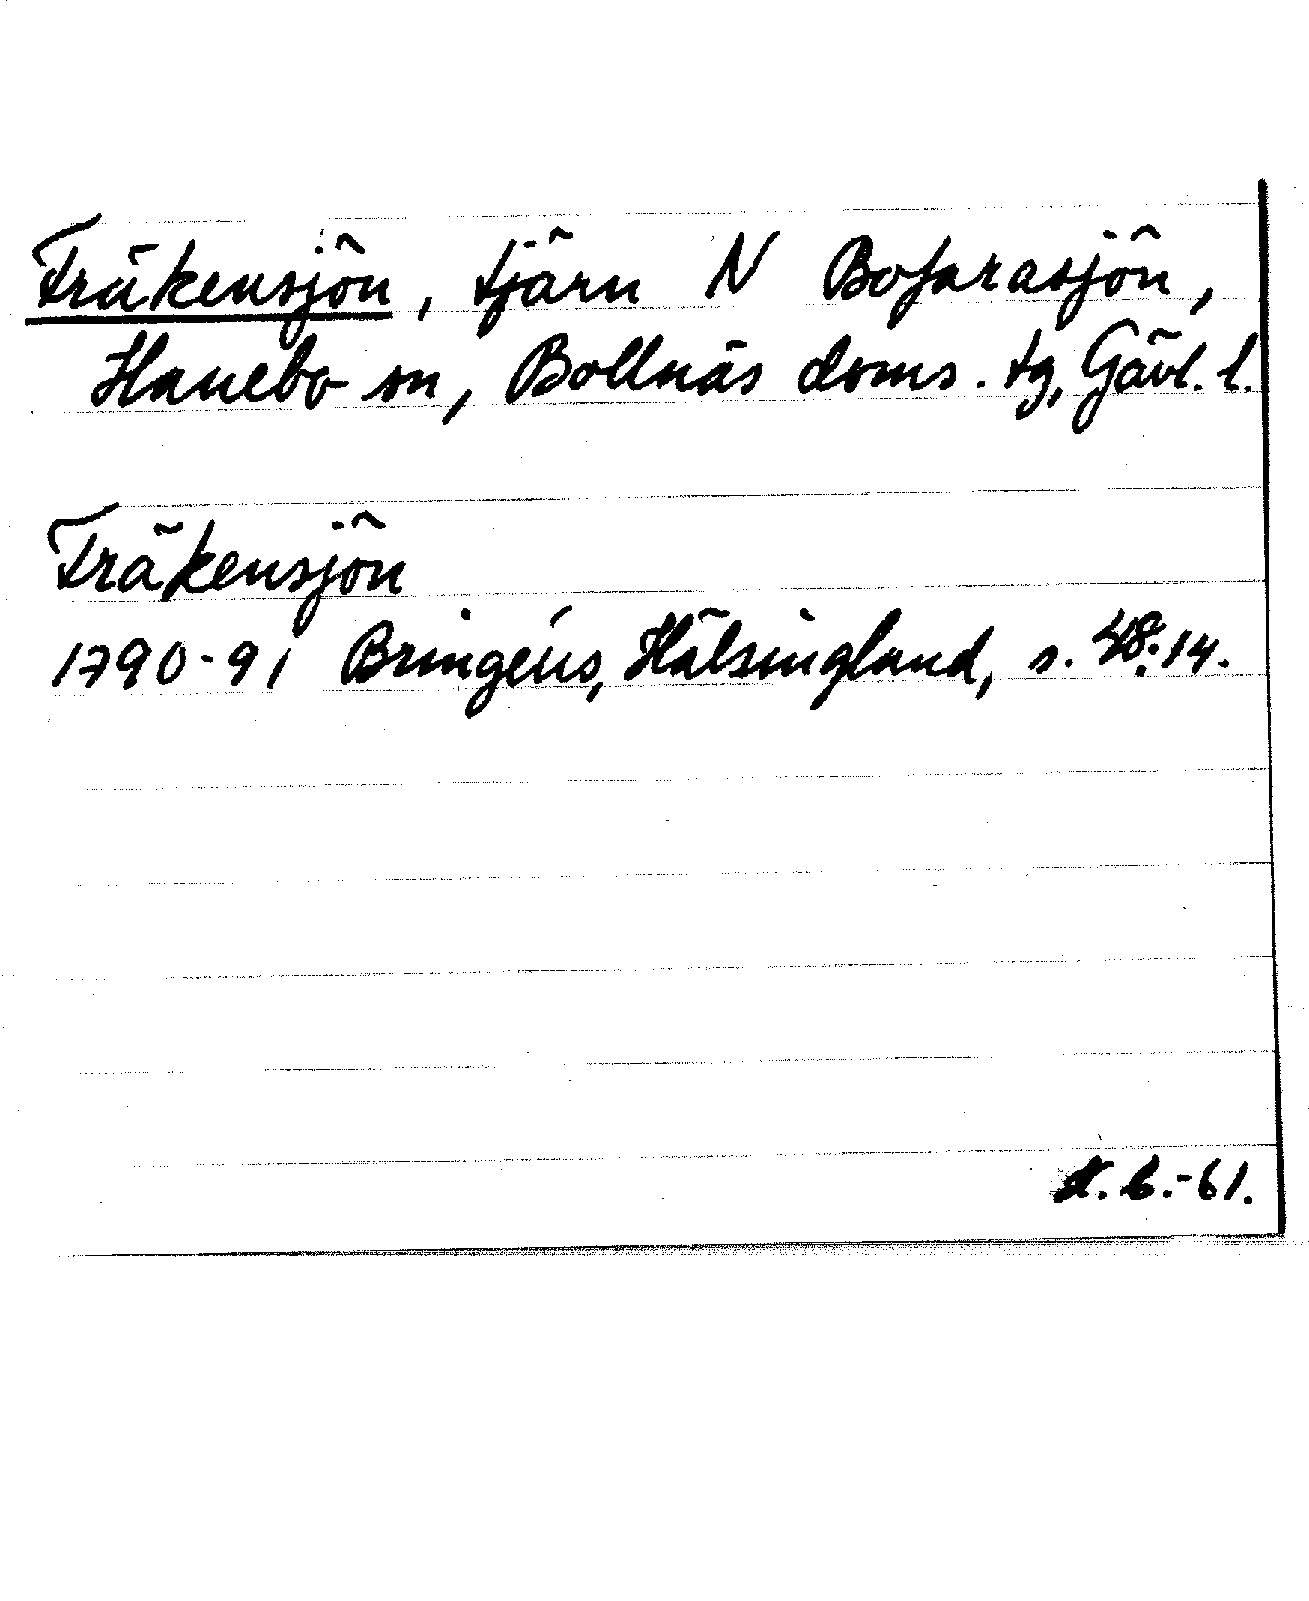 Fräkensjön, tjärn N Bofarasjön,
Hanebo sn, Bollnäs doms. tg, Gävl. l.
Fräkensjön
1790-91 Bringéus, Hälsingland, s. 48:14.
61.